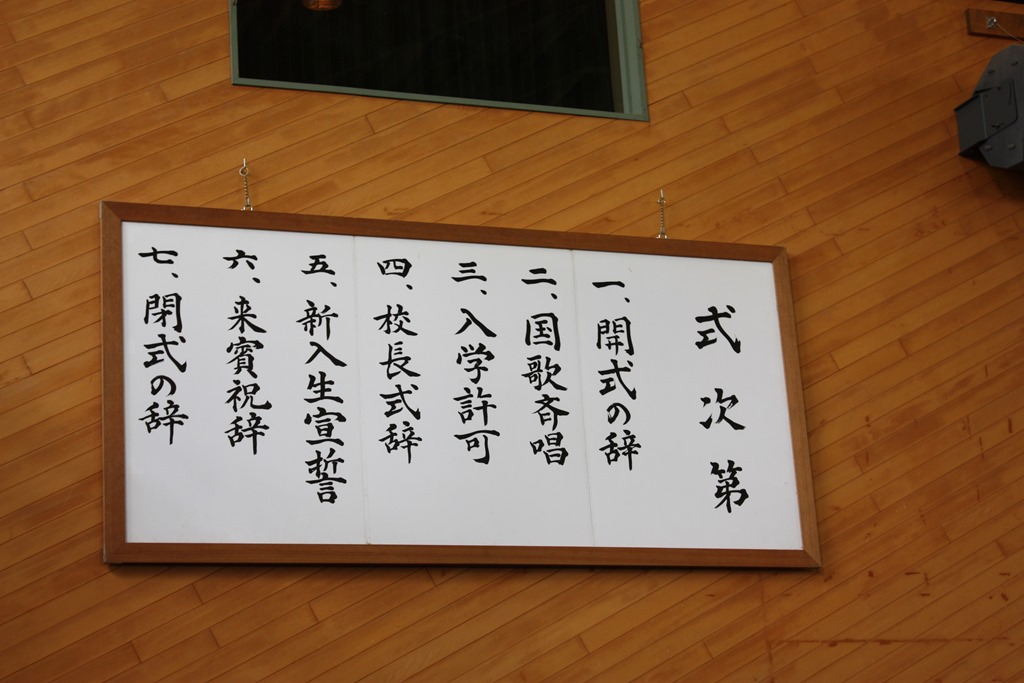 式次第
一、開式の辞
二、国歌斉唱
三、入学許可
四、校長式辞
五、新入生宣誓
六、来賓祝辞
七、閉式の辞